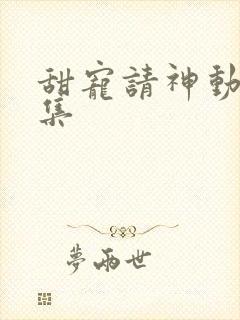 甜寵請神動
集
夢兩世